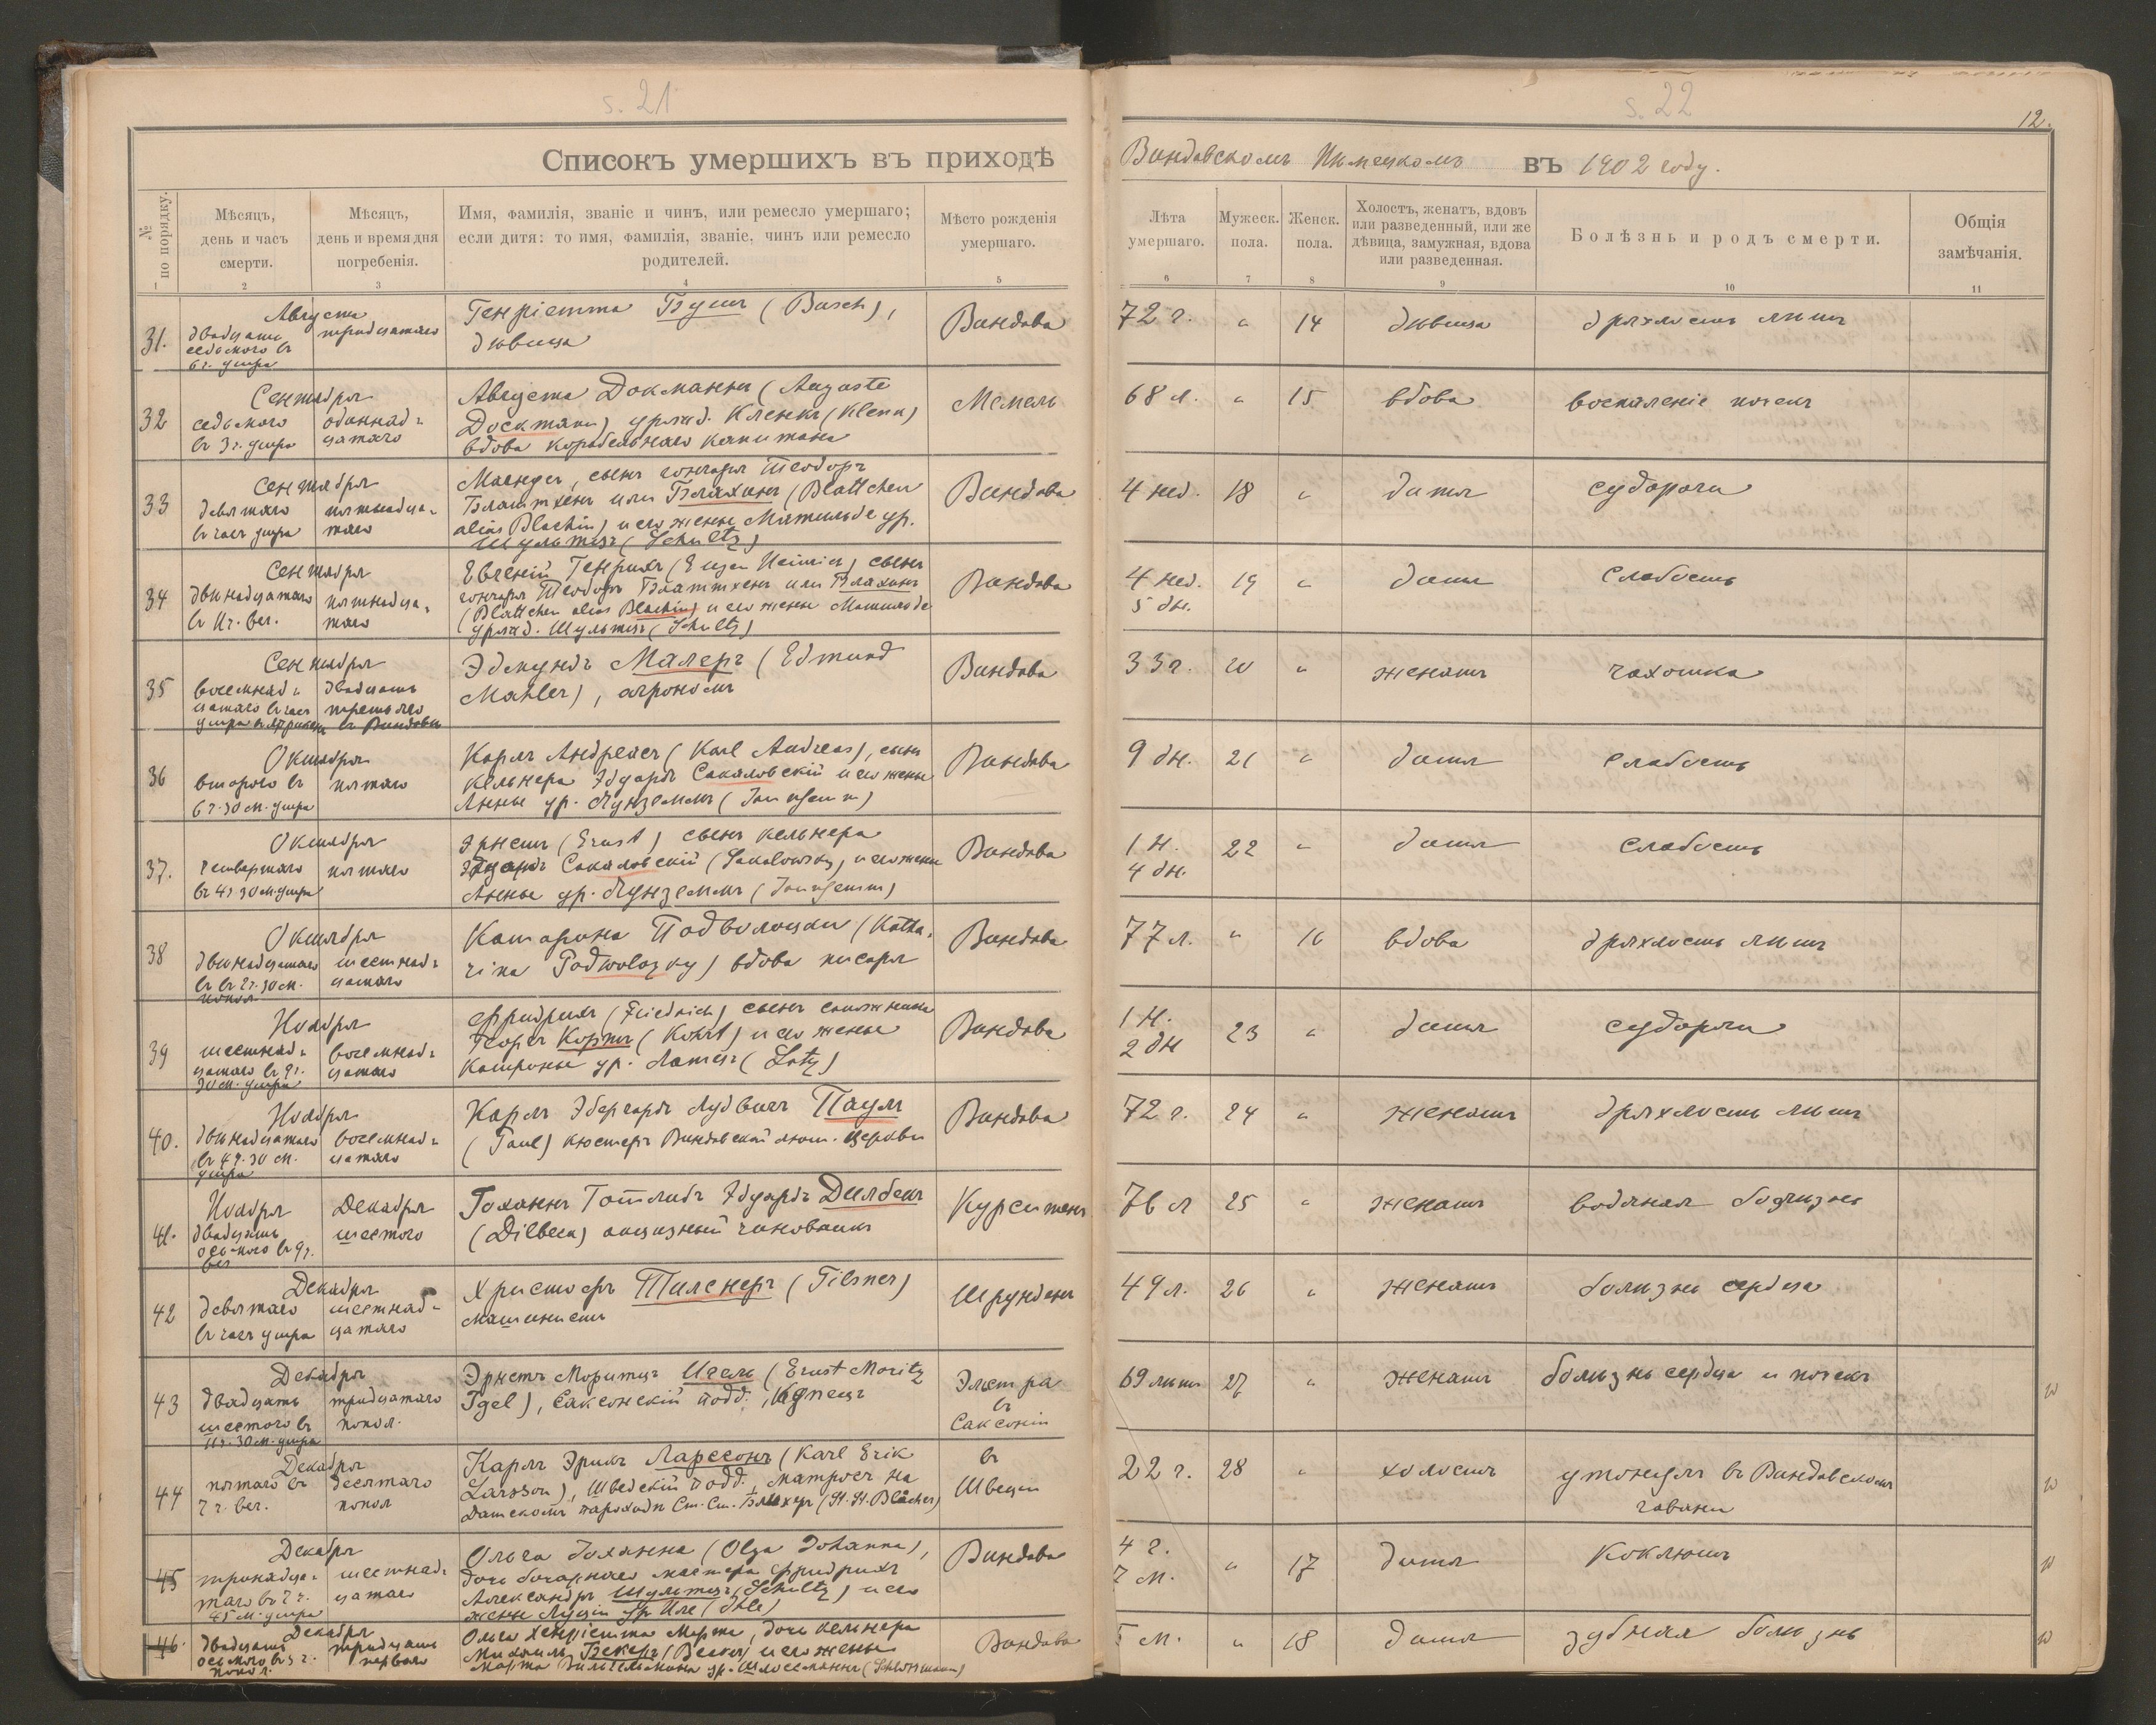 s. 21
s. 22
12.
Списокъ умершихъ въ приходѣ
Виндавскомъ Нѣмецкомъ въ 1902 году.
№ по порядку.
Мѣсяцъ,
день и часъ
смерти.
Мѣсяцъ,
день и время дня
погребенія.
Имя, фамилія, званіе и чинъ, или ремесло умершаго;
если дитя: то имя, фамилія, званіе, чинъ или ремесло
родителей.
Мѣсто рожденія
умершаго.
Лѣта
умершаго.
Мужеск.
пола.
Женск.
пола.
Холостъ, женатъ, вдовъ
или разведенный, или же
дѣвица, замужная, вдова
или разведенная.
Болѣзнь и родъ смерти.
Общія
замѣчанія.
1 2 3 4 5 6 7 8 9 10 11
31.
Августа
двадцать седьмого въ
6 ч. утра
тридцатаго
Генріетта Бушъ (Busch),
дѣвица
Виндава
72 г. " 14 дѣвица дряхлость лѣтъ
32
Сентября
седьмого
въ 3 ч. утра
одиннад-
цатаго
Августа Докманнъ (Auguste
Dockmann) урожд. Кленкъ (Klenk)
вдова корабельнаго капитана
Мемель
68 л. " 15 вдова воспаленіе почекъ
33
Сентября
девятаго
въ часъ утра
пятнадца-
таго
сынъ гончара Теодоръ
Блаттхенъ или Блахинъ (Blattchen
alias Blachin) и его жены Матильде ур.
Шультцъ (Schultz)
Виндава
4 нед. 18 " дитя судороги
34
Сентября
двѣнадцатаго
въ 11 ч. веч.
пятнадца-
таго
Евгеній Генрихъ (Eugen Heinrich) сынъ
гончара Теодоръ Блаттхенъ или Блахинъ
(Blattchen alias Blachin) и его жены Матильде
урожд. Шультцъ (Schultz)
Виндава
4 нед.
5 дн.
19 " дитя слабость
35
Сентября
восемнад-
цатаго въ часъ
утра
двадцать
третьяго
въ Виндавѣ
Эдмундъ Малеръ (Edmund
Mahler), агрономъ
Виндава
33 г. 20 " женатъ чахотка
36
Октября
второго въ
6 ч. 30 м. утра
пятаго
Карлъ Андреасъ (Karl Andreas), сынъ
кельнера Эдуардъ Сакаловскій и его жены
Анны ур.
Виндава
9 дн. 21 " дитя слабость
37.
Октября
четвертаго
въ 4 ч 30 м. утра
пятаго
Эрнстъ (Ernst) сынъ кельнера
Эдуардъ Сакаловскій (Sakalowsky) и его жены
Анны ур.
Виндава
1 н.
4 дн.
22 " дитя слабость
38
Октября
двѣнадцатаго
въ 2 ч. 30 м.
попол.
шестнад-
цатаго
Катарина Подволоцки (Katha-
rina Podwolozky) вдова писаря
Виндава
77 л. " 16 вдова дряхлость лѣтъ
39
Ноября
шестнад-
цатаго въ 9 ч.
30 м. утра
восемнад-
цатаго
Фридрихъ (Friedrich) сынъ сапожника
Георгъ Кортъ (Kohrt) и его жены
Катрины ур. Латцъ (Latz)
Виндава
1 н.
2 дн
23 " дитя судороги
40.
Ноября
двѣнадцатаго
въ 4 ч. 30 м.
утра
восемнад-
цатаго
Карлъ Эбергардъ Лудвигъ Пауль
(Paul) кюстеръ Виндавской лют. церкви
Виндава
72 г. 24 " женатъ дряхлость лѣтъ
41.
Ноября
двадцать
осьмого въ 9 ч.
веч
Декабря
шестого
Іоганнъ Готлибъ Эдуардъ Дилбекъ
(Dilbeck) акцизный чиновникъ
Курситенъ
76 л 25 " женатъ водяная болѣзнь
42
Декабря
девятаго
въ часъ утра
шестнад-
цатаго
Христофъ Тилснеръ (Tilsner)
машинистъ
Шрунденъ
49 л. 26 " женатъ болѣзнь сердца
43
Декабря
двадцать
шестого въ
11 ч. 30 м. утра
тридцатаго
попол.
Эрнстъ Морицъ Игель (Ernst Moritz
Igel), Саксонскій подд., купецъ
Эльстра
въ
Саксоніи
69 лѣтъ 27 " женатъ болѣзнь сердца и почекъ
44
Декабря
пятаго въ
7 ч. веч.
десятаго
попол
Карлъ Эрикъ Ларссонъ (Karl Erik
Larsson), Шведскій подд., матросъ на
Датскомъ пароходѣ Ст. См. Блюхеръ (St. St. Blücher)
въ
Швеціи
22 г. 28 " холостъ утонулъ въ Виндавскомъ
гавани
45
Декабря
тринадца-
таго въ 2 ч.
45 м. утра
шестнад-
цатаго
Ольга Іоханна (Olga Johanna),
дочь бочарнаго мастера Фридрихъ
Александръ Шультцъ (Schultz) и его
жены Луціи ур Иле (Ihle)
Виндава
4 г.
7 м.
" 17 дитя коклюшъ
46.
Декабря
двадцать
осьмого въ 3 ч.
попол.
тридцать
перваго
Ольга Хенріетта Марта, дочь кельнера
Михаилъ Бекеръ (Becker) и его жены
Марта Вильгельмина ур. Шлоссманнъ (Schlossmann)
Виндава
5 м. " 18 дитя зубная болѣзнь